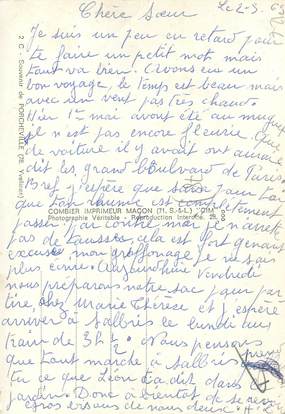 Chère Sœur
Le 2-5. 69
Je suis un peu en retard pour
te faire un petit mot mais
tout va bien. Avons eu un
bon voyage, le temps est beau mais
avec un vent pas très chaud.
Hier 1er mai avont été au muguet
il n'est pas encore fleurie. Que
de voiture il y avait ont aurait
dit les grand boulevard de Paris.
Bref j'espère que pour toi
que ton rhume est complètement
passer par contre moi je n'arrete
pas de tousser, cela est fort genant
excuse mon griffonage je ne sais
plus écrire. Aujourd'hui vendredi
nous préparons notre sac pour par
tire, chez Marie Thérèse et j'espère
arriver à Salbris le lundi au
train de 3h ½. Nous pensons
que tout marche à Salbris
tu ce que Léon t'a dit dans le
jardin. Donc à bientôt de se revoir
gros bisous de nous deux
2 C - Souvenir de PORCHEVILLE (78. Yvelines)
COMBIER IMPRIMEUR MACON (71, S.-&-L.) "CIM"
Photographie Véritable - Reproduction Interdite